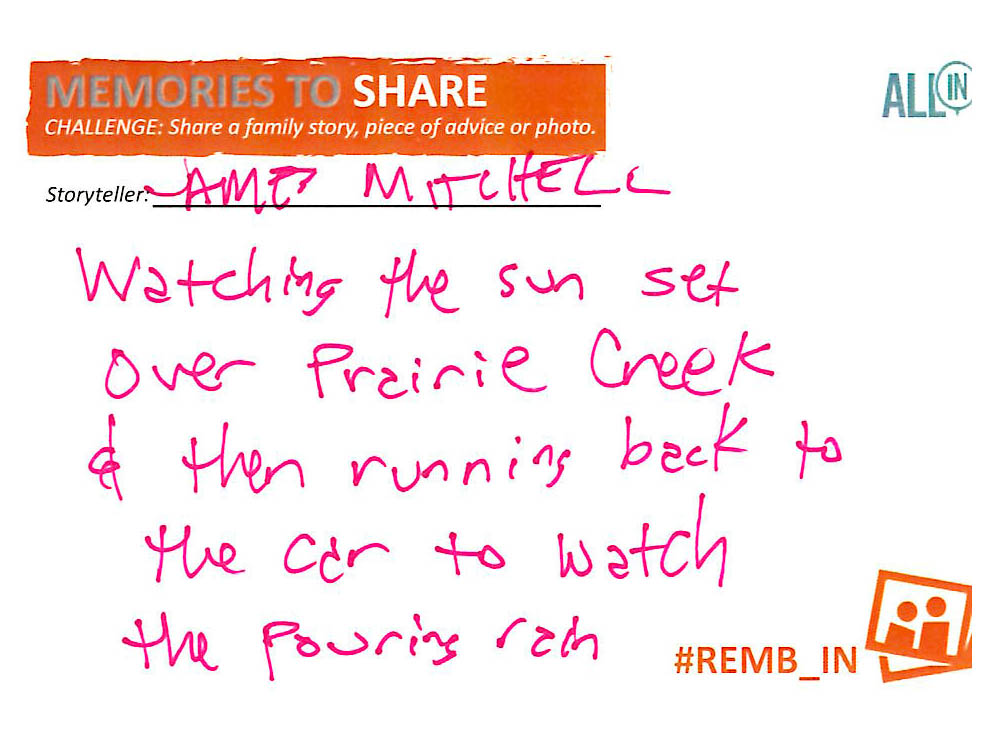 MEMORIES TO SHARE
ALL IN
CHALLENGE: Share a family story, piece of advice or photo.
Storyteller: MITCHELL
Watching the sun set
over Prairie Creek
& then running back to
the car to watch
the pouring rain
#REMB_IN